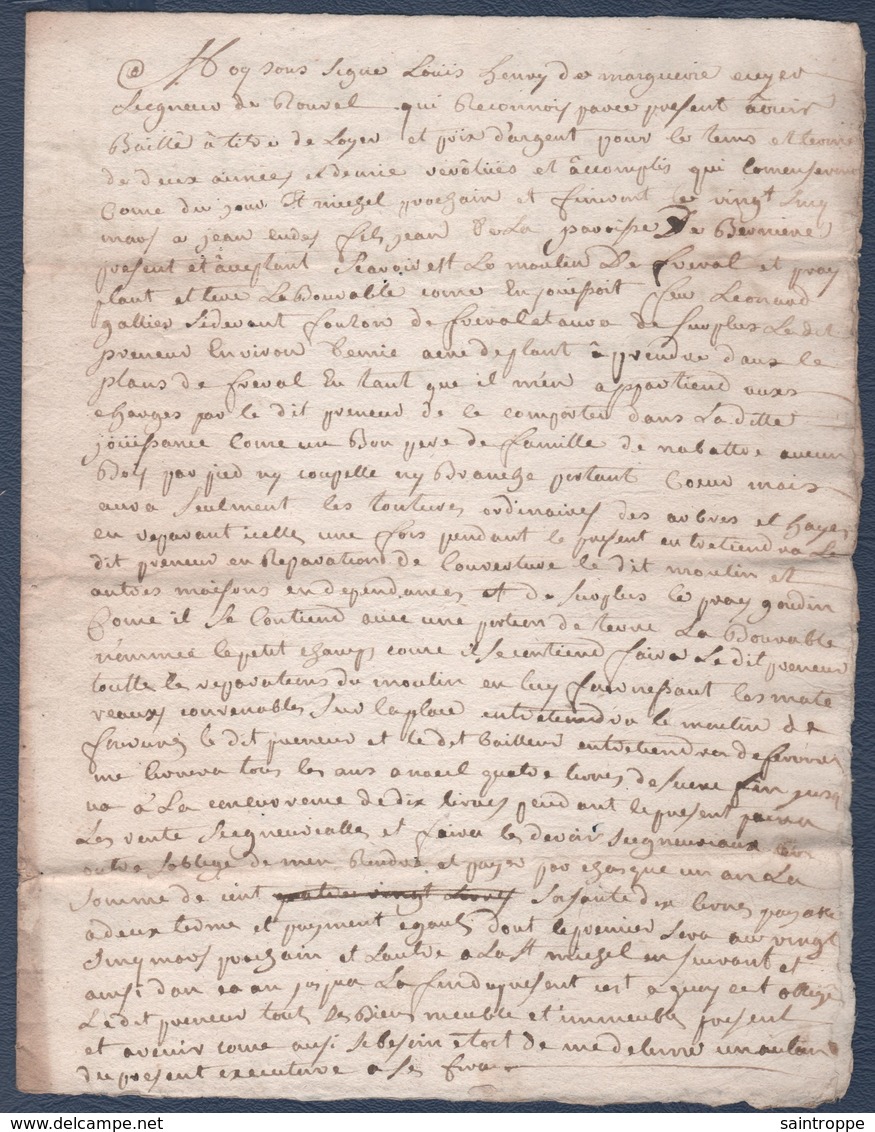 Moy sous signe Louis henry de margueirie ecuyer
Seigneur de Rouvel qui Reconnois par ce present avoir
Baillê â titre de Loyer et prix d'argent pour le tems et terme
de deux annees et demie revôlües et âccomplis qui Comenseront
Come du jour St michel prochain et finiront le vingt sinq
mars a jean eudes fils jean De La paroisse De Berniere
present et âceptant Scavoir est Le moulin De freval et pray
plant et terre Labourable come En jouissoit feu Leonard
gallier sidevant foulon de freval et aura de surplus Le dit
preneur Environ Demie acre de plant â prendre dans le
plans de freval En tant que il m'en appartiend auxs
charges par le dit preneur de ce comporter dans La ditte
joüissance Come un Bon pere de famille de nabattre aucun
Bois par pied ny coupelle ny Branche portant Coeur mais
aura seulment les tontures ordinaires des arbres et hayes
en reparant icelles une fois pendant le present entretiendra Le
dit preneur en Reparations de Couverture le dit moulin et
autres maisons en dependances et de surplus le pray goudin
Come il se Contiend avec une portion de terre La Bourable
nommee le petit champs come il se contiend faira Le dit preneur
toutte les reparations du moulin en luy fournissant les mate
reaux convenables sur la place entretiendra le moulin de
le dit preneur et le dit bailleur entretiendra de
me livrera tous les ans a noeil quatre livres de sucre fin jusq
ua â La concurrence de dix livres pendant le present paira
Les rente Seigneurialles et faira les devoir Seigneuriaux
outre soblige de men Rendre et payer par chasque un an La
somme de cent quatre vingt livres soisante dix livres payable
a deux terme et payment egaux dont le premier sera au vingt
sinq mars prochain et Lautre a La St michel en suivant et
ainsi dan en an jusqua La fin du present cest a quoy cest oblige
Le dit preneur tous ses Biens meuble et immeubles present
et avenir come ausi sebesoin etoit de me delivre un autan
du present executoire a ses frais
saintroppe